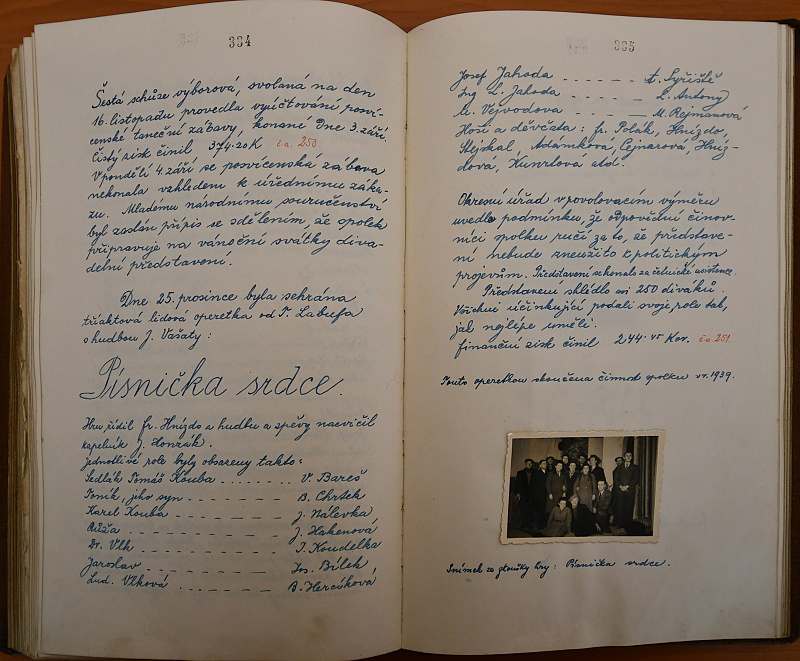 334
Šestá schůze výborová, svolaná na den
16. listopadu provedla vyúčtování posví-
censké taneční zábavy, konané Dne 3. září.
Čistý zisk činil 374·20 K č.a. 250
V pondělí 4. září se posvícenská zábava
nekonala vzhledem k úřednímu záka-
zu. Mladému národnímu souručenství
byl zaslán přípis se sdělením, že spolek
připravuje na vánoční svátky diva-
delní představení.
Dne 25. prosince byla sehrána
tříaktová lidová operetka od T. Labufa
s hudbou J. Vašaty:
Písnička srdce.
Hru řídil Fr. Hnízdo a hudbu a spěvy nacvičil
kapelník J. Honzák.
Jednotlivé role byly obsazeny takto:
Sedlák Tomáš Kouba ....... V. Bareš
Toník, jeho syn - - - - - - - B. Chrtek
Karel Kouba - - - - - - J. Nálevka
Růža - - - - - - - - J. Hakenová
Dr. Vlk - - - - - - - - J. Koudelka
Jaroslav - - - - - - - - Jos. Bílek
Lud. Vlková - - - - - - - B. Hercíková
335
Josef Jahoda - - - - - - A. Syřiště
Ing L. Jahoda - - - - - - L. Antony
M. Vejvodova - - - - - - M. Rejmanová
Hoši a děvčata: Fr. Polák, Hnízdo,
Stejskal, Adamkova, Cejnarová, Hníz-
dová, Kunrtová atd.
Okresní úřad v povolovacím výměru
uvedl podmínku, že odpovědní činov-
níci spolku ručí za to, že představe-
ní nebude zneužito k politickým
projevům. Představení se konalo za četnické asistence.
Představení shlédlo asi 250 diváků.
Všichni účinkující podali svoje role tak,
jak nejlépe uměli.
Finanční zisk činil 244·45 Kor. č.a. 251.
Touto operetkou skončena činnost spolku v r. 1939.
Snímek ze zkoušky hry: Písnička srdce.